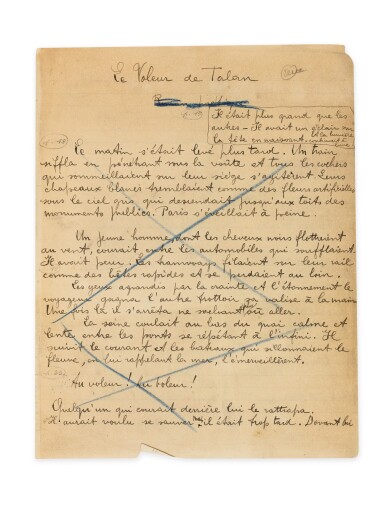 Le Voleur de Talan
Il était plus grand que les
autres – Il avait un éclair sur
la tête en naissant.
Le matin s'était levé plus tard. Un train
siffla en pénétrant sous la voûte et tous les cochers
qui sommeillaient sur leur siège s'agitèrent. Leurs
chapeaux blancs tremblaient comme des fleurs artificielles
sous le ciel gris qui descendait jusqu'aux toits des
monuments publics. Paris s'éveillait à peine.
Un jeune homme, dont les cheveux noirs flottaient
au vent, courait entre les automobiles qui soufflaient.
Il avait peur. Les tramways filaient sur leur rail
comme des bêtes rapides et se perdaient au loin.
Les yeux agrandis par la crainte et l'étonnement le
voyageur gagna l'autre trottoir sa valise à la main.
Une fois là il s'arrêta ne sachant où aller.
La seine coulait au bas du quai calme et
lente entre les ponts se répétant à l'infini. Il
suivit le courant et les bateaux qui sillonnaient le
fleuve, en lui rappelant la mer, l'émerveillèrent.
Au voleur ! Au voleur !
Quelqu'un qui courait derrière lui le rattrapa.
Il aurait voulu se sauver mais il était trop tard. Devant lui